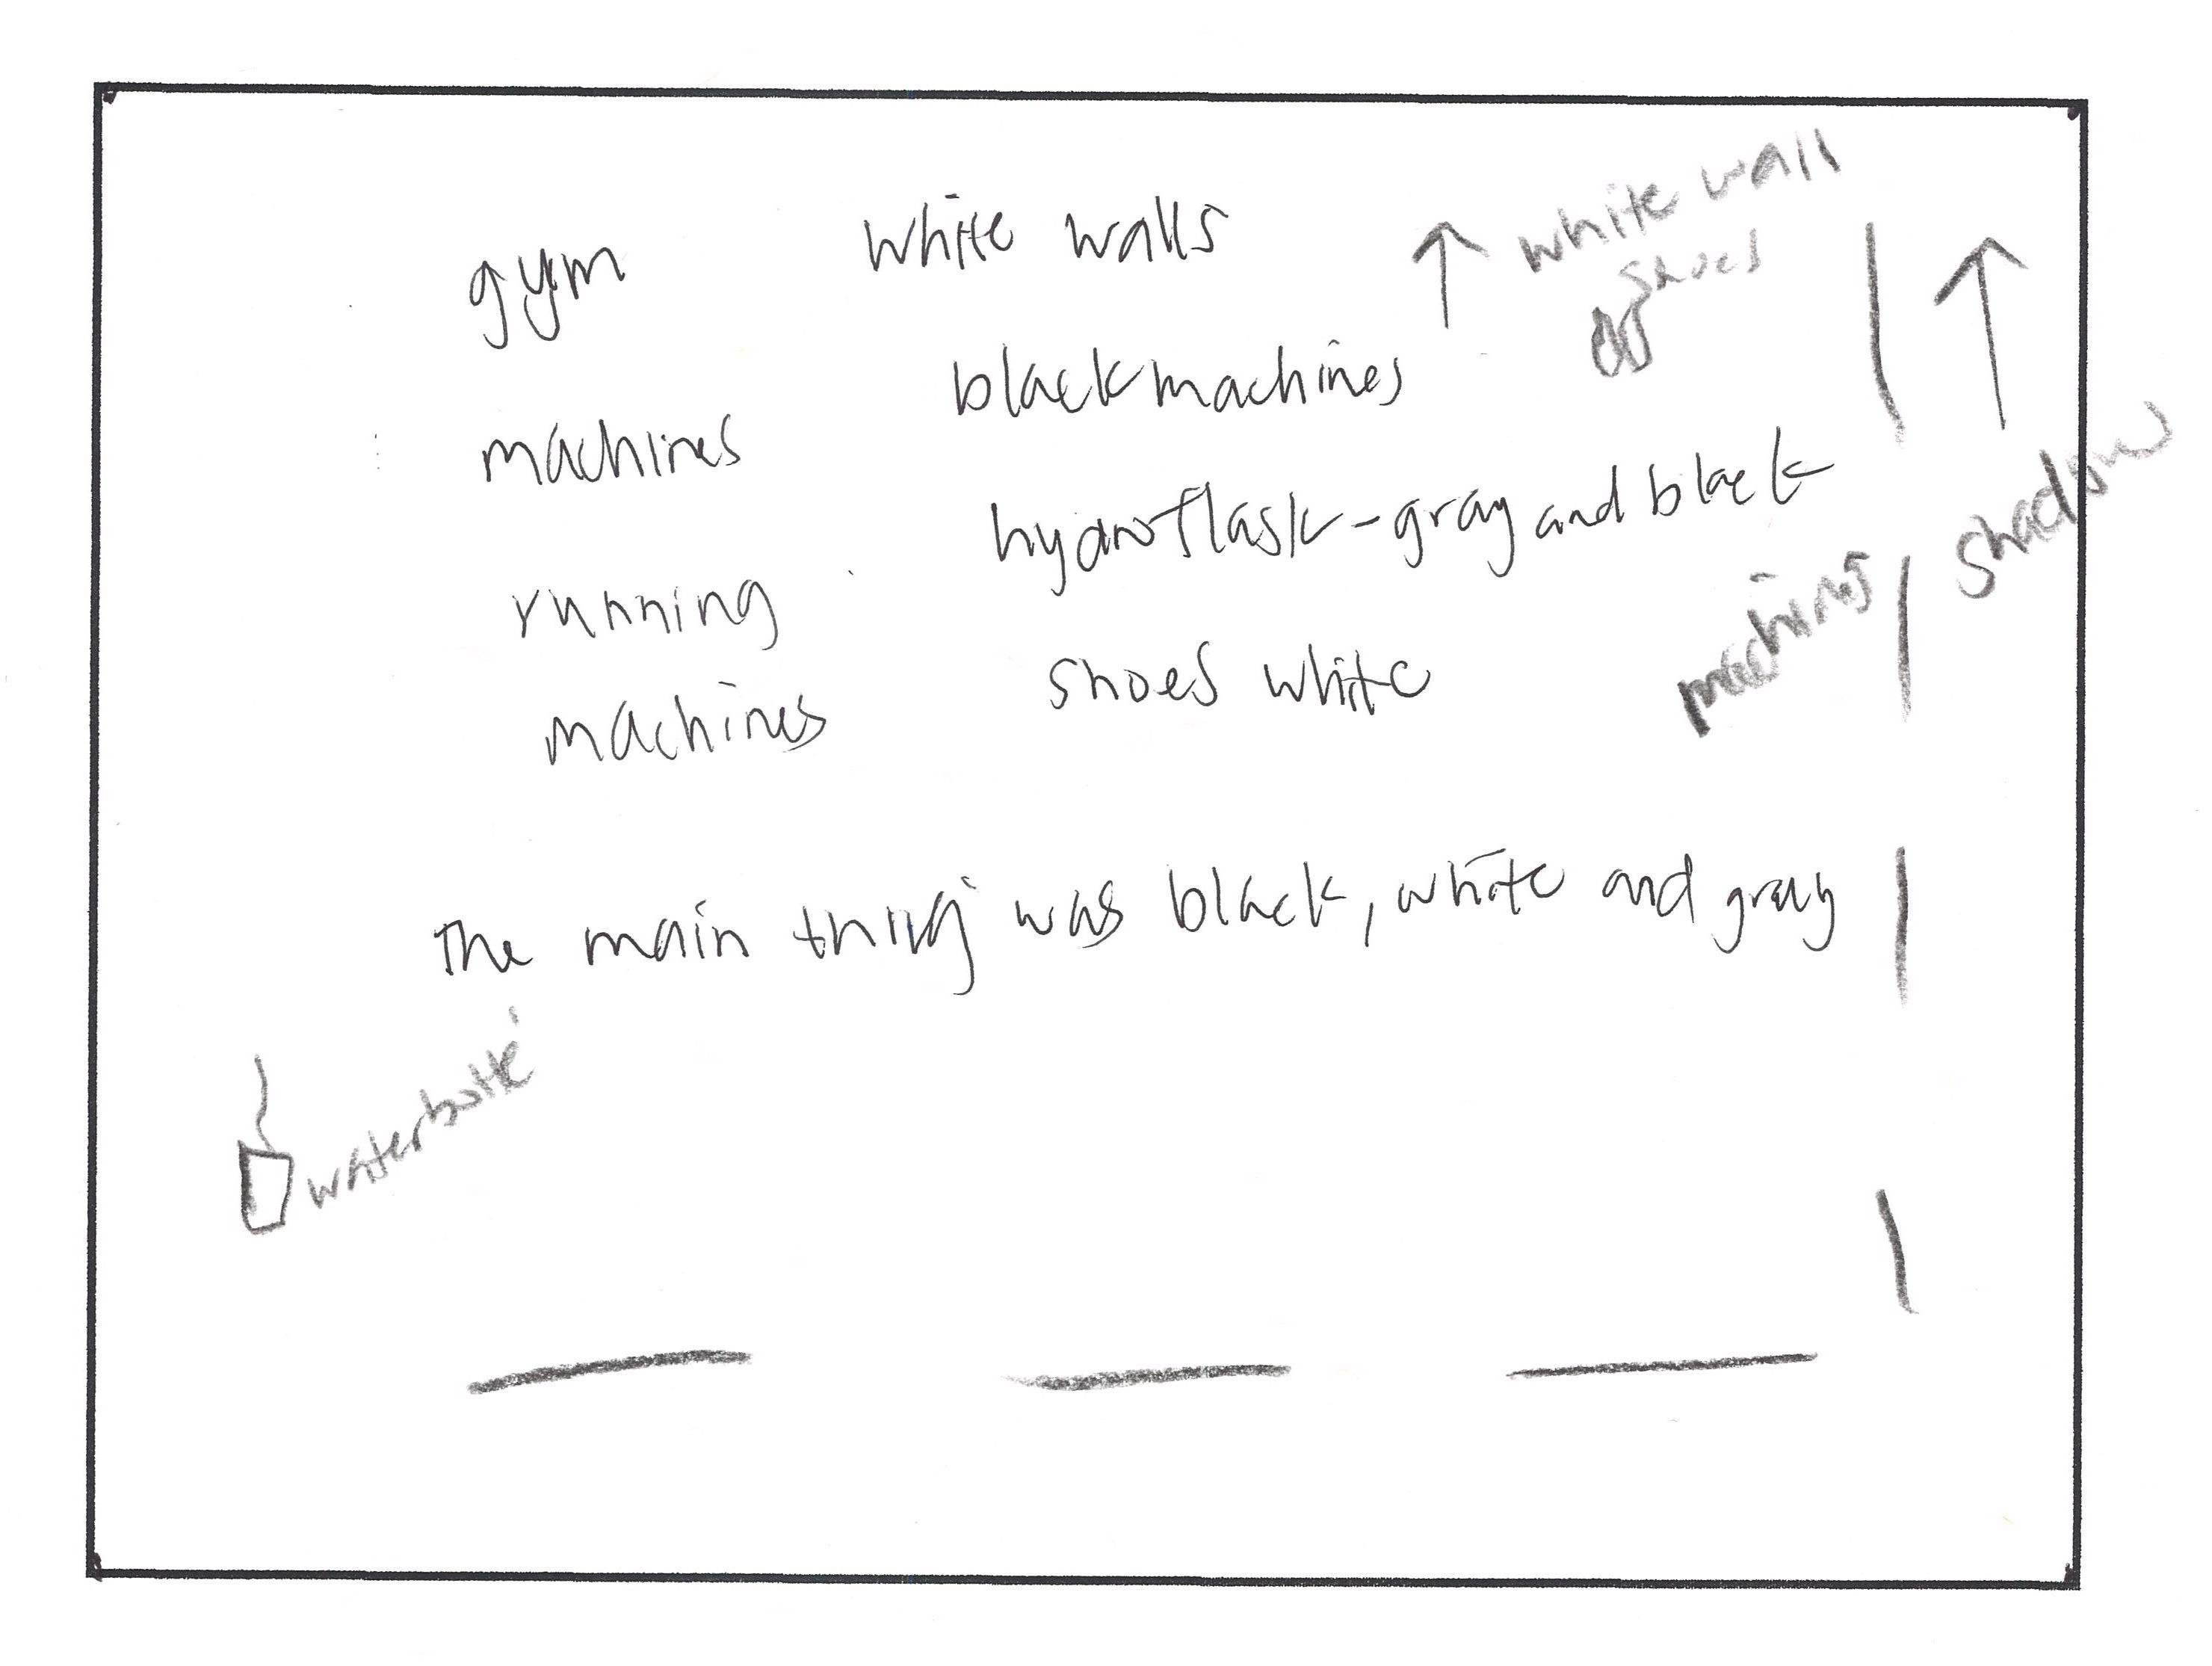 gym
machines
running
machines
white walls
black machines
hydroflask - gray and black
shoes white
white wall
shoes
machines
shadow
The main thing was black, white and gray
waterbottle